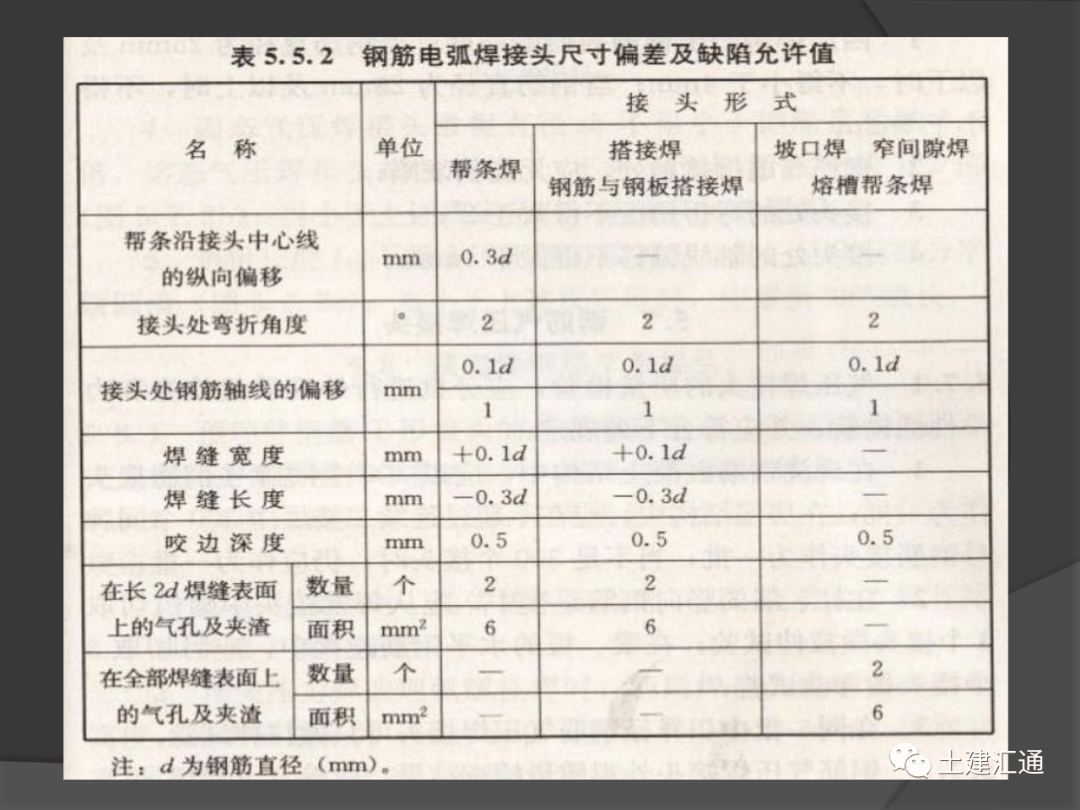 表 5.5.2 钢筋电弧焊接头尺寸偏差及缺陷允许值
名 称 单位 接 头 形 式
帮条焊 搭接焊 钢筋与钢板搭接焊 坡口焊 窄间隙焊 熔槽帮条焊
帮条沿接头中心线的纵向偏移 mm 0.3d — —
接头处弯折角度 ° 2 2 2
接头处钢筋轴线的偏移 mm 0.1d 0.1d 0.1d
1 1 1
焊 缝 宽 度 mm +0.1d +0.1d —
焊 缝 长 度 mm −0.3d −0.3d —
咬 边 深 度 mm 0.5 0.5 0.5
在长 2d 焊缝表面上的气孔及夹渣 数量 个 2 2 —
面积 mm² 6 6 —
在全部焊缝表面上的气孔及夹渣 数量 个 — — 2
面积 mm² — — 6
注：d 为钢筋直径（mm）。
土建汇通